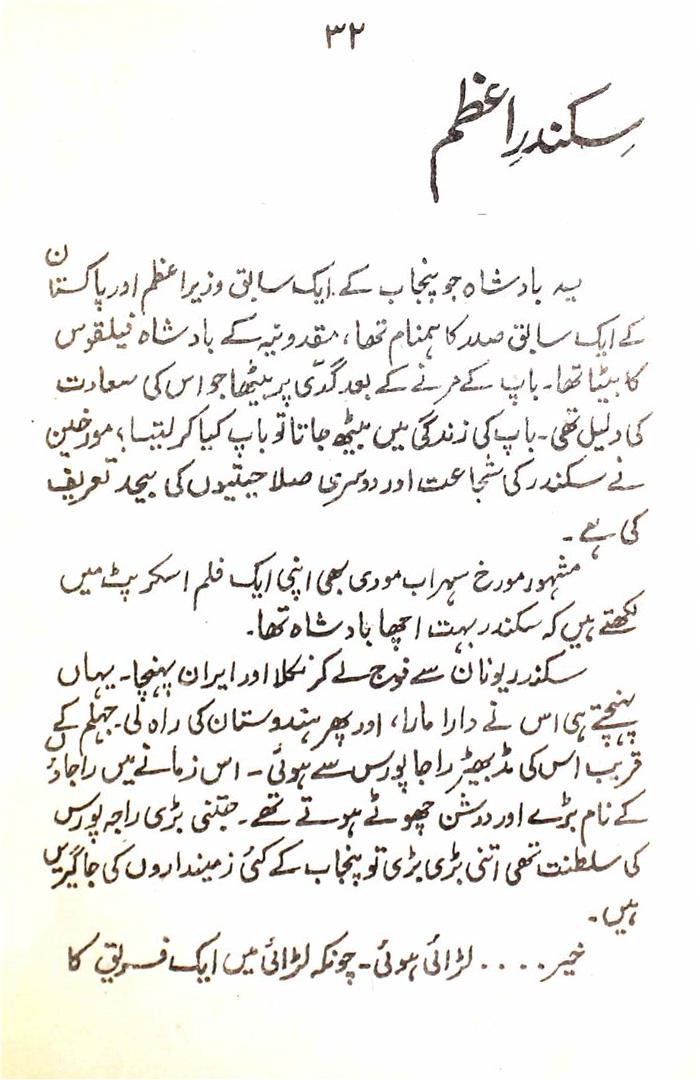 ۳۲
سکندرِ اعظم
یہ بادشاہ جو پنجاب کے ایک سابق وزیراعظم اور پاکستان
کے ایک سابق صدر کا ہمنام تھا، مقدونیہ کے بادشاہ فیلقوس
کا بیٹا تھا۔ باپ کے مرنے کے بعد گدّی پر بیٹھا جو اس کی سعادت
کی دلیل تھی۔ باپ کی زندگی میں بیٹھ جاتا تو باپ کیا کر لیتا؟ مورخین
نے سکندر کی شجاعت اور دوسری صلاحیتیوں کی بیحد تعریف
کی ہے۔
مشہور مورخ سہراب مودی بھی اپنی ایک فلم اسکرپٹ میں
لکھتے ہیں کہ سکندر بہت اچھا بادشاہ تھا۔
سکندر یونان سے فوج لے کر نکلا اور ایران پہنچا۔ یہاں
پہنچتے ہی اس نے دارا مارا، اور پھر ہندوستان کی راہ لی۔ جہلم کے
قریب اس کی مڈبھیڑ راجا پورس سے ہوئی۔ اس زمانے میں راجاؤں
کے نام بڑے اور درشن چھوٹے ہوتے تھے۔ جتنی بڑی راجہ پورس
کی سلطنت تھی اتنی بڑی بڑی تو پنجاب کے کئی زمینداروں کی جاگیریں
ہیں۔
خیر.... لڑائی ہوئی۔ چونکہ لڑائی میں ایک فریق کا